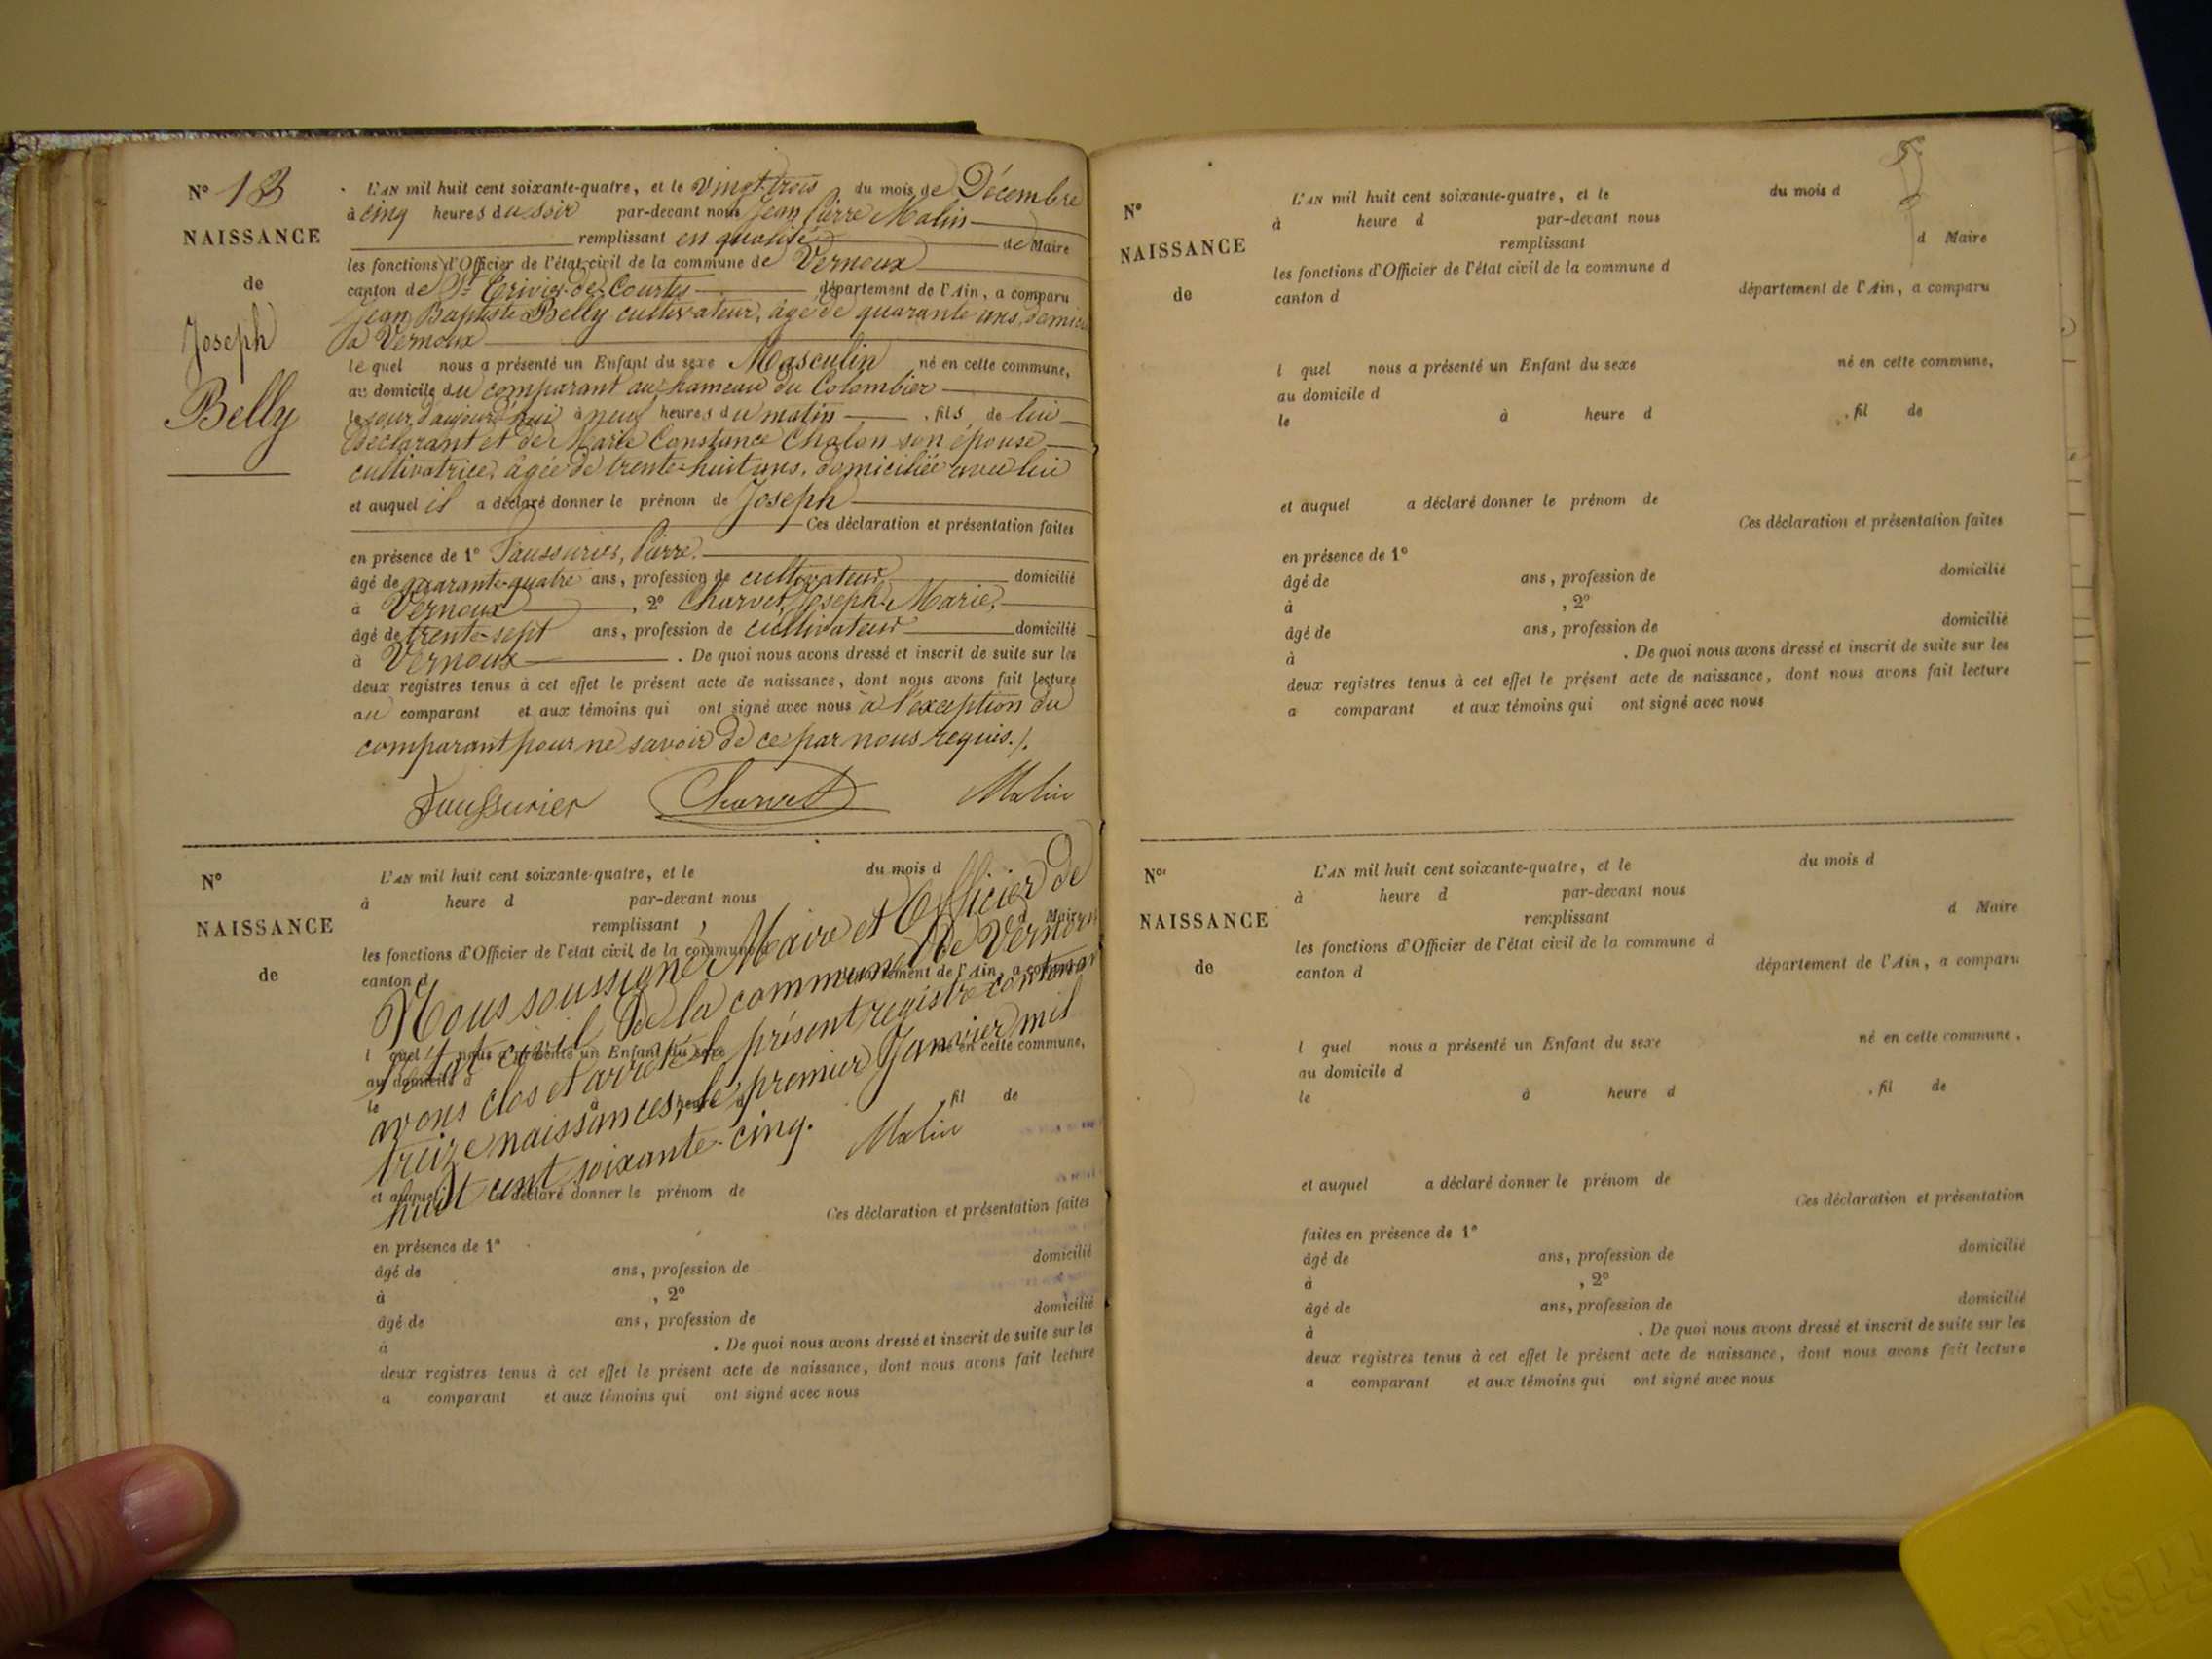 N° 13
NAISSANCE
de
Joseph
Belly
L'AN mil huit cent soixante-quatre, et le vingt-trois du mois de Décembre
à cinq heures du soir par-devant nous Jean Pierre Malin
remplissant en qualité de Maire
les fonctions d'Officier de l'état civil de la commune de Vernoux
canton de St Trivier-de-Courtes département de l'Ain, a comparu
Jean Baptiste Belly cultivateur, âgé de quarante ans, domici
à Vernoux
le quel nous a présenté un Enfant du sexe Masculin né en cette commune,
au domicile du comparant au hameau du Colombier
le jour d'aujourd'hui à neuf heures du matin, fils de lui
déclarant et de Marie Constance Chalon son épouse
cultivatrice, âgée de trente-huit ans, domiciliée avec lui
et auquel il a déclaré donner le prénom de Joseph
Ces déclaration et présentation faites
en présence de 1° Faussurier, Pierre.
âgé de quarante-quatre ans, profession de cultivateur domicilié
à Vernoux, 2° Charvet, Joseph Marie,
âgé de trente-sept ans, profession de cultivateur domicilié
à Vernoux. De quoi nous avons dressé et inscrit de suite sur les
deux registres tenus à cet effet le présent acte de naissance, dont nous avons fait lecture
au comparant et aux témoins qui ont signé avec nous à l'exception du
comparant pour ne savoir de ce par nous requis.
Faussurier Charvet Malin
N°
NAISSANCE
de
L'AN mil huit cent soixante-quatre, et le du mois d
à heure d par-devant nous
remplissant d Maire
les fonctions d'Officier de l'état civil de la commune d
canton d département de l'Ain, a comparu
Nous soussigné Maire et Officier de
l'état civil de la commune de Vernoux
avons clos et arrêté le présent registre contenant
treize naissances, le premier Janvier mil
huit cent soixante-cinq. Malin
l quel nous a présenté un Enfant du sexe né en cette commune,
au domicile d
le à heure d fil de
et auquel a déclaré donner le prénom de
Ces déclaration et présentation faites
en présence de 1°
âgé de ans, profession de domicilié
à , 2°
âgé de ans, profession de domicilié
à . De quoi nous avons dressé et inscrit de suite sur les
deux registres tenus à cet effet le présent acte de naissance, dont nous avons fait lecture
a comparant et aux témoins qui ont signé avec nous
N°
NAISSANCE
de
L'AN mil huit cent soixante-quatre, et le du mois d
à heure d par-devant nous
remplissant d Maire
les fonctions d'Officier de l'état civil de la commune d
canton d département de l'Ain, a comparu
l quel nous a présenté un Enfant du sexe né en cette commune,
au domicile d
le à heure d , fil de
et auquel a déclaré donner le prénom de
Ces déclaration et présentation faites
en présence de 1°
âgé de ans, profession de domicilié
à , 2°
âgé de ans, profession de domicilié
à . De quoi nous avons dressé et inscrit de suite sur les
deux registres tenus à cet effet le présent acte de naissance, dont nous avons fait lecture
a comparant et aux témoins qui ont signé avec nous
N°
NAISSANCE
de
L'AN mil huit cent soixante-quatre, et le du mois d
à heure d par-devant nous
remplissant d Maire
les fonctions d'Officier de l'état civil de la commune d
canton d département de l'Ain, a comparu
l quel nous a présenté un Enfant du sexe né en cette commune,
au domicile d
le à heure d , fil de
et auquel a déclaré donner le prénom de
Ces déclaration et présentation
faites en présence de 1°
âgé de ans, profession de domicilié
à , 2°
âgé de ans, profession de domicilié
à . De quoi nous avons dressé et inscrit de suite sur les
deux registres tenus à cet effet le présent acte de naissance, dont nous avons fait lecture
a comparant et aux témoins qui ont signé avec nous